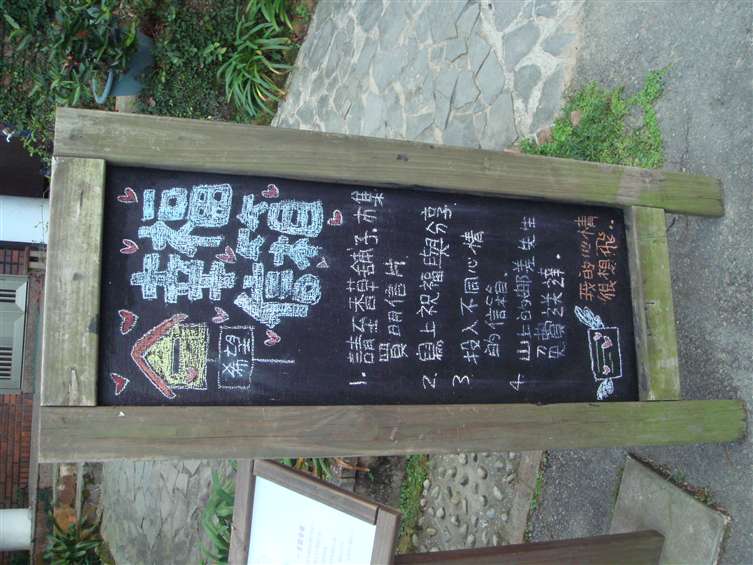 幸福
信箱
希望
1. 請至香草舖子.市集
買明信片
2. 寫上祝福與分享
3. 投入不同心情
的信箱
4. 山上的郵差先生
免費送達.
我的心情
很想飛..